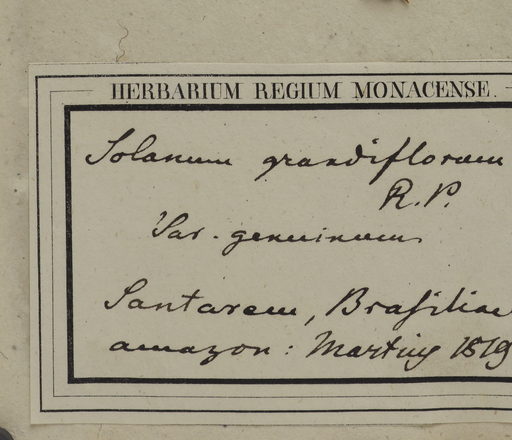 HERBARIUM REGIUM MONACENSE.
Solanum grandiflorum
R. P.
Var. genuinum
Santarem, Brasiliae
amazon: Martius 1819